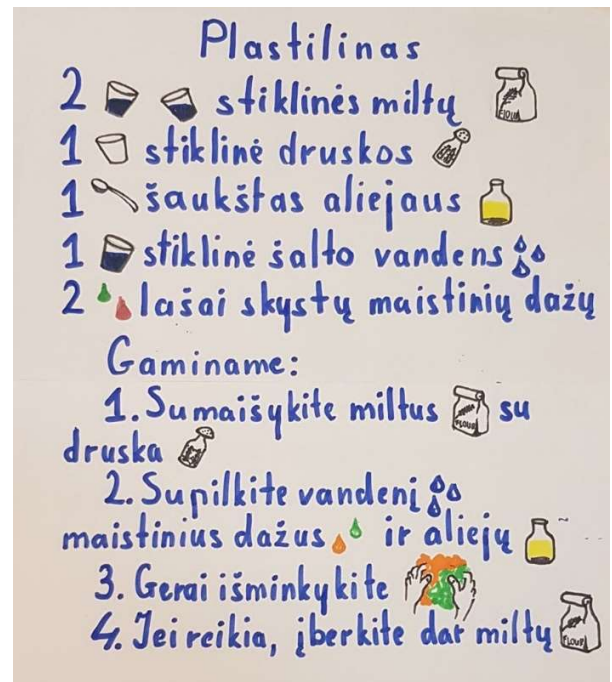 Plastilinas
2 stiklinės miltų
1 stiklinė druskos
1 šaukštas aliejaus
1 stiklinė šalto vandens
2 lašai skystų maistinių dažų
Gaminame:
1. Sumaišykite miltus FLOUR su
druska
2. Supilkite vandenį
maistinius dažus ir aliejų
3. Gerai išminkykite
4. Jei reikia, įberkite dar miltų FLOUR